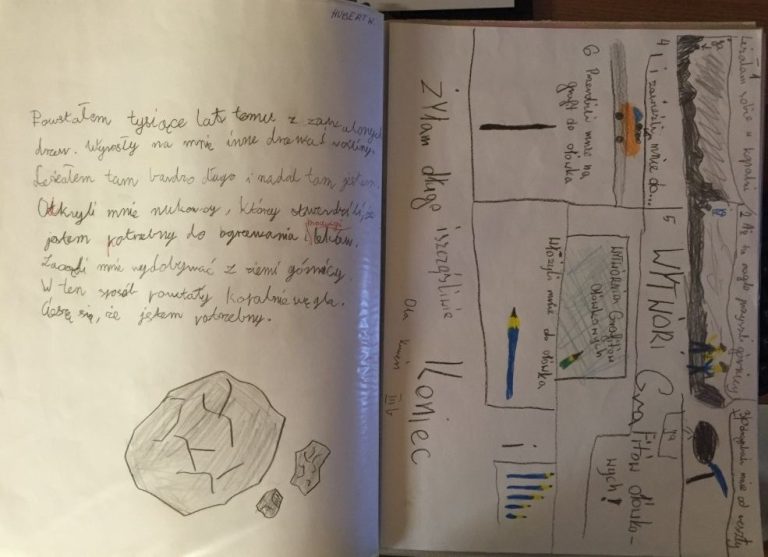 HUBERT W.
Powstałem tysiące lat temu z
drzew. Wyrosły na mnie inne drzewa i rośliny.
Leżałem tam bardzo długo i nadal tam jestem.
Odkryli mnie nukowcy, którzy stwierdzili, że
jestem potrzebny do ogrzewania i
Zaczęli mnie wydobywać z ziemi górnicy.
W ten sposób powstały kopalnie węgla.
Cieszę się, że jestem potrzebny.
1 Leżałam sobie w kopalni
ja
2 Aż tu nagle przyszli górnicy
3 i mnie od reszty
4 i zawieźli mnie do...
5 WYTWÓRI Grafitów ołówko-
wych!
6 Przerobili mnie na
grafit do ołówka
Wytwórnia Grafitów
Ołówkowych
Włożyli mnie do ołówka
i
żyłam długo i szczęśliwie
Koniec
III b